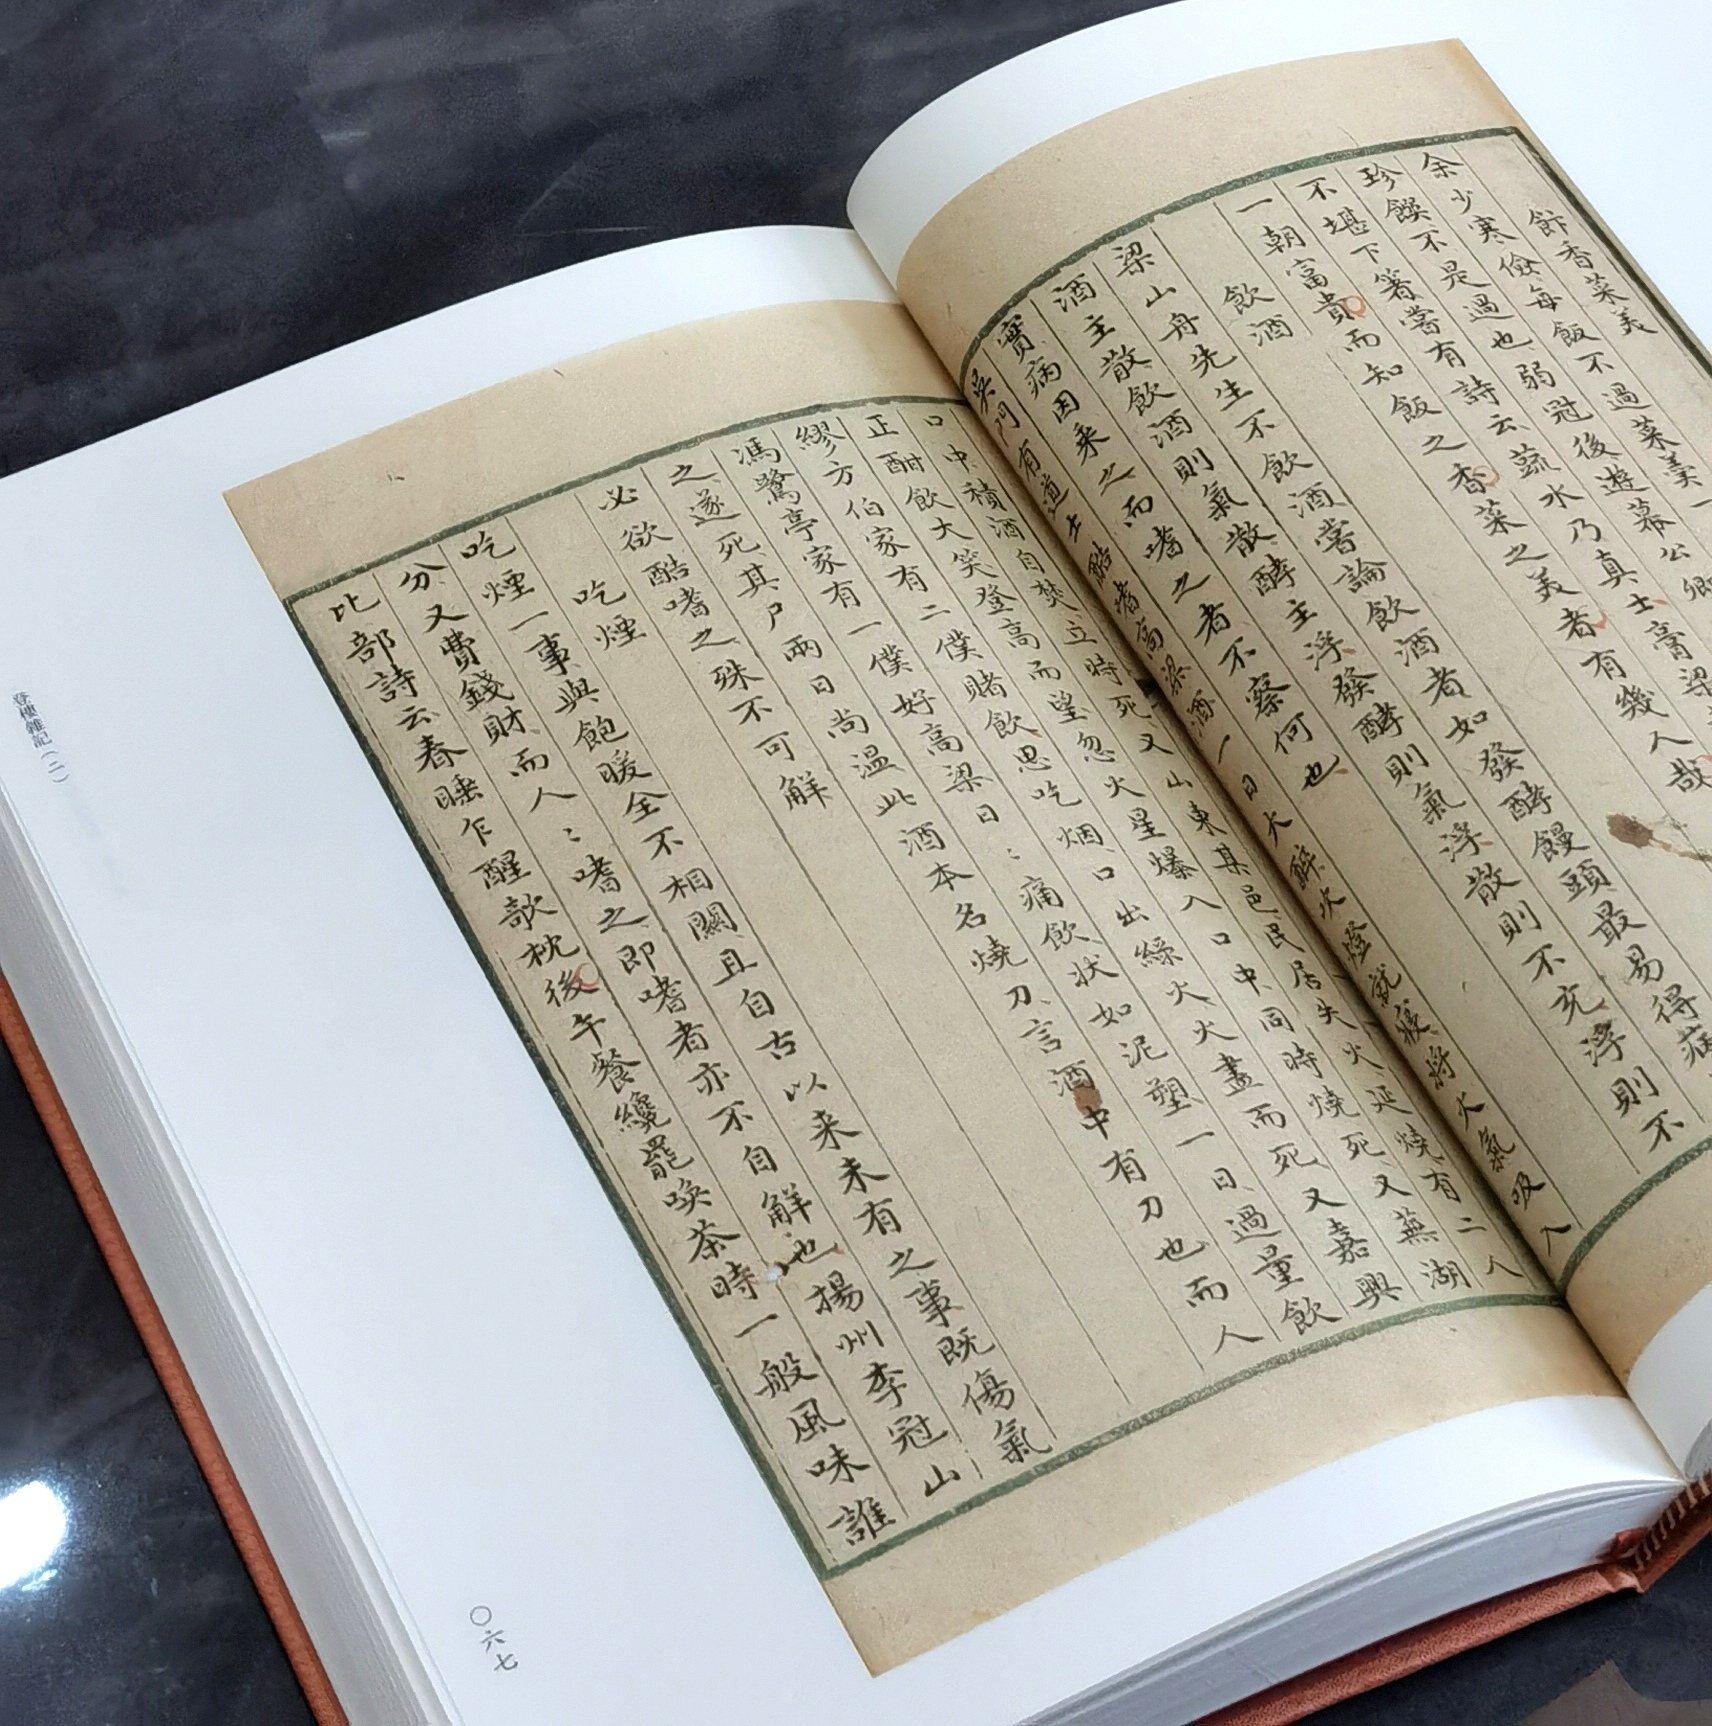 飰香菜美
余少寒儉每飯不過菜羹一
珍饌不是過也弱冠後遊幕公卿
不堪下箸嘗有詩云蔬水乃真士膏粱
一朝富貴而知飯之香菜之美者有幾人哉
飲酒
梁山舟先生不飲酒嘗論飲酒者如發酵饅頭最易得病
酒主散飲酒則氣散酵主浮發酵則氣浮散則不充浮則不
實病因乘之而嗜之者不察何也
吳門有道士酷嗜高粱酒一日大醉火燈就寢將火氣吸入
口中積酒自焚立時死又山東某邑民居失火延燒有二人
正酣飲大笑登高而望忽火星爆入口中同時燒死又蕪湖
繆方伯家有二僕賭飲思吃烟口出綠火火盡而死又嘉興
馮鷺亭家有一僕好高粱日〻痛飲狀如泥塑一日過量飲
之遂死其尸兩日尚溫此酒本名燒刀言酒中有刀也而人
必欲酷嗜之殊不可解
吃煙
吃煙一事與飽暖全不相關且自古以来未有之事既傷氣
分又費錢財而人〻嗜之即嗜者亦不自解也揚州李冠山
比部詩云春睡乍醒欹枕後午餐纔罷喚茶時一般風味誰
登樓雜記（二）
〇六七